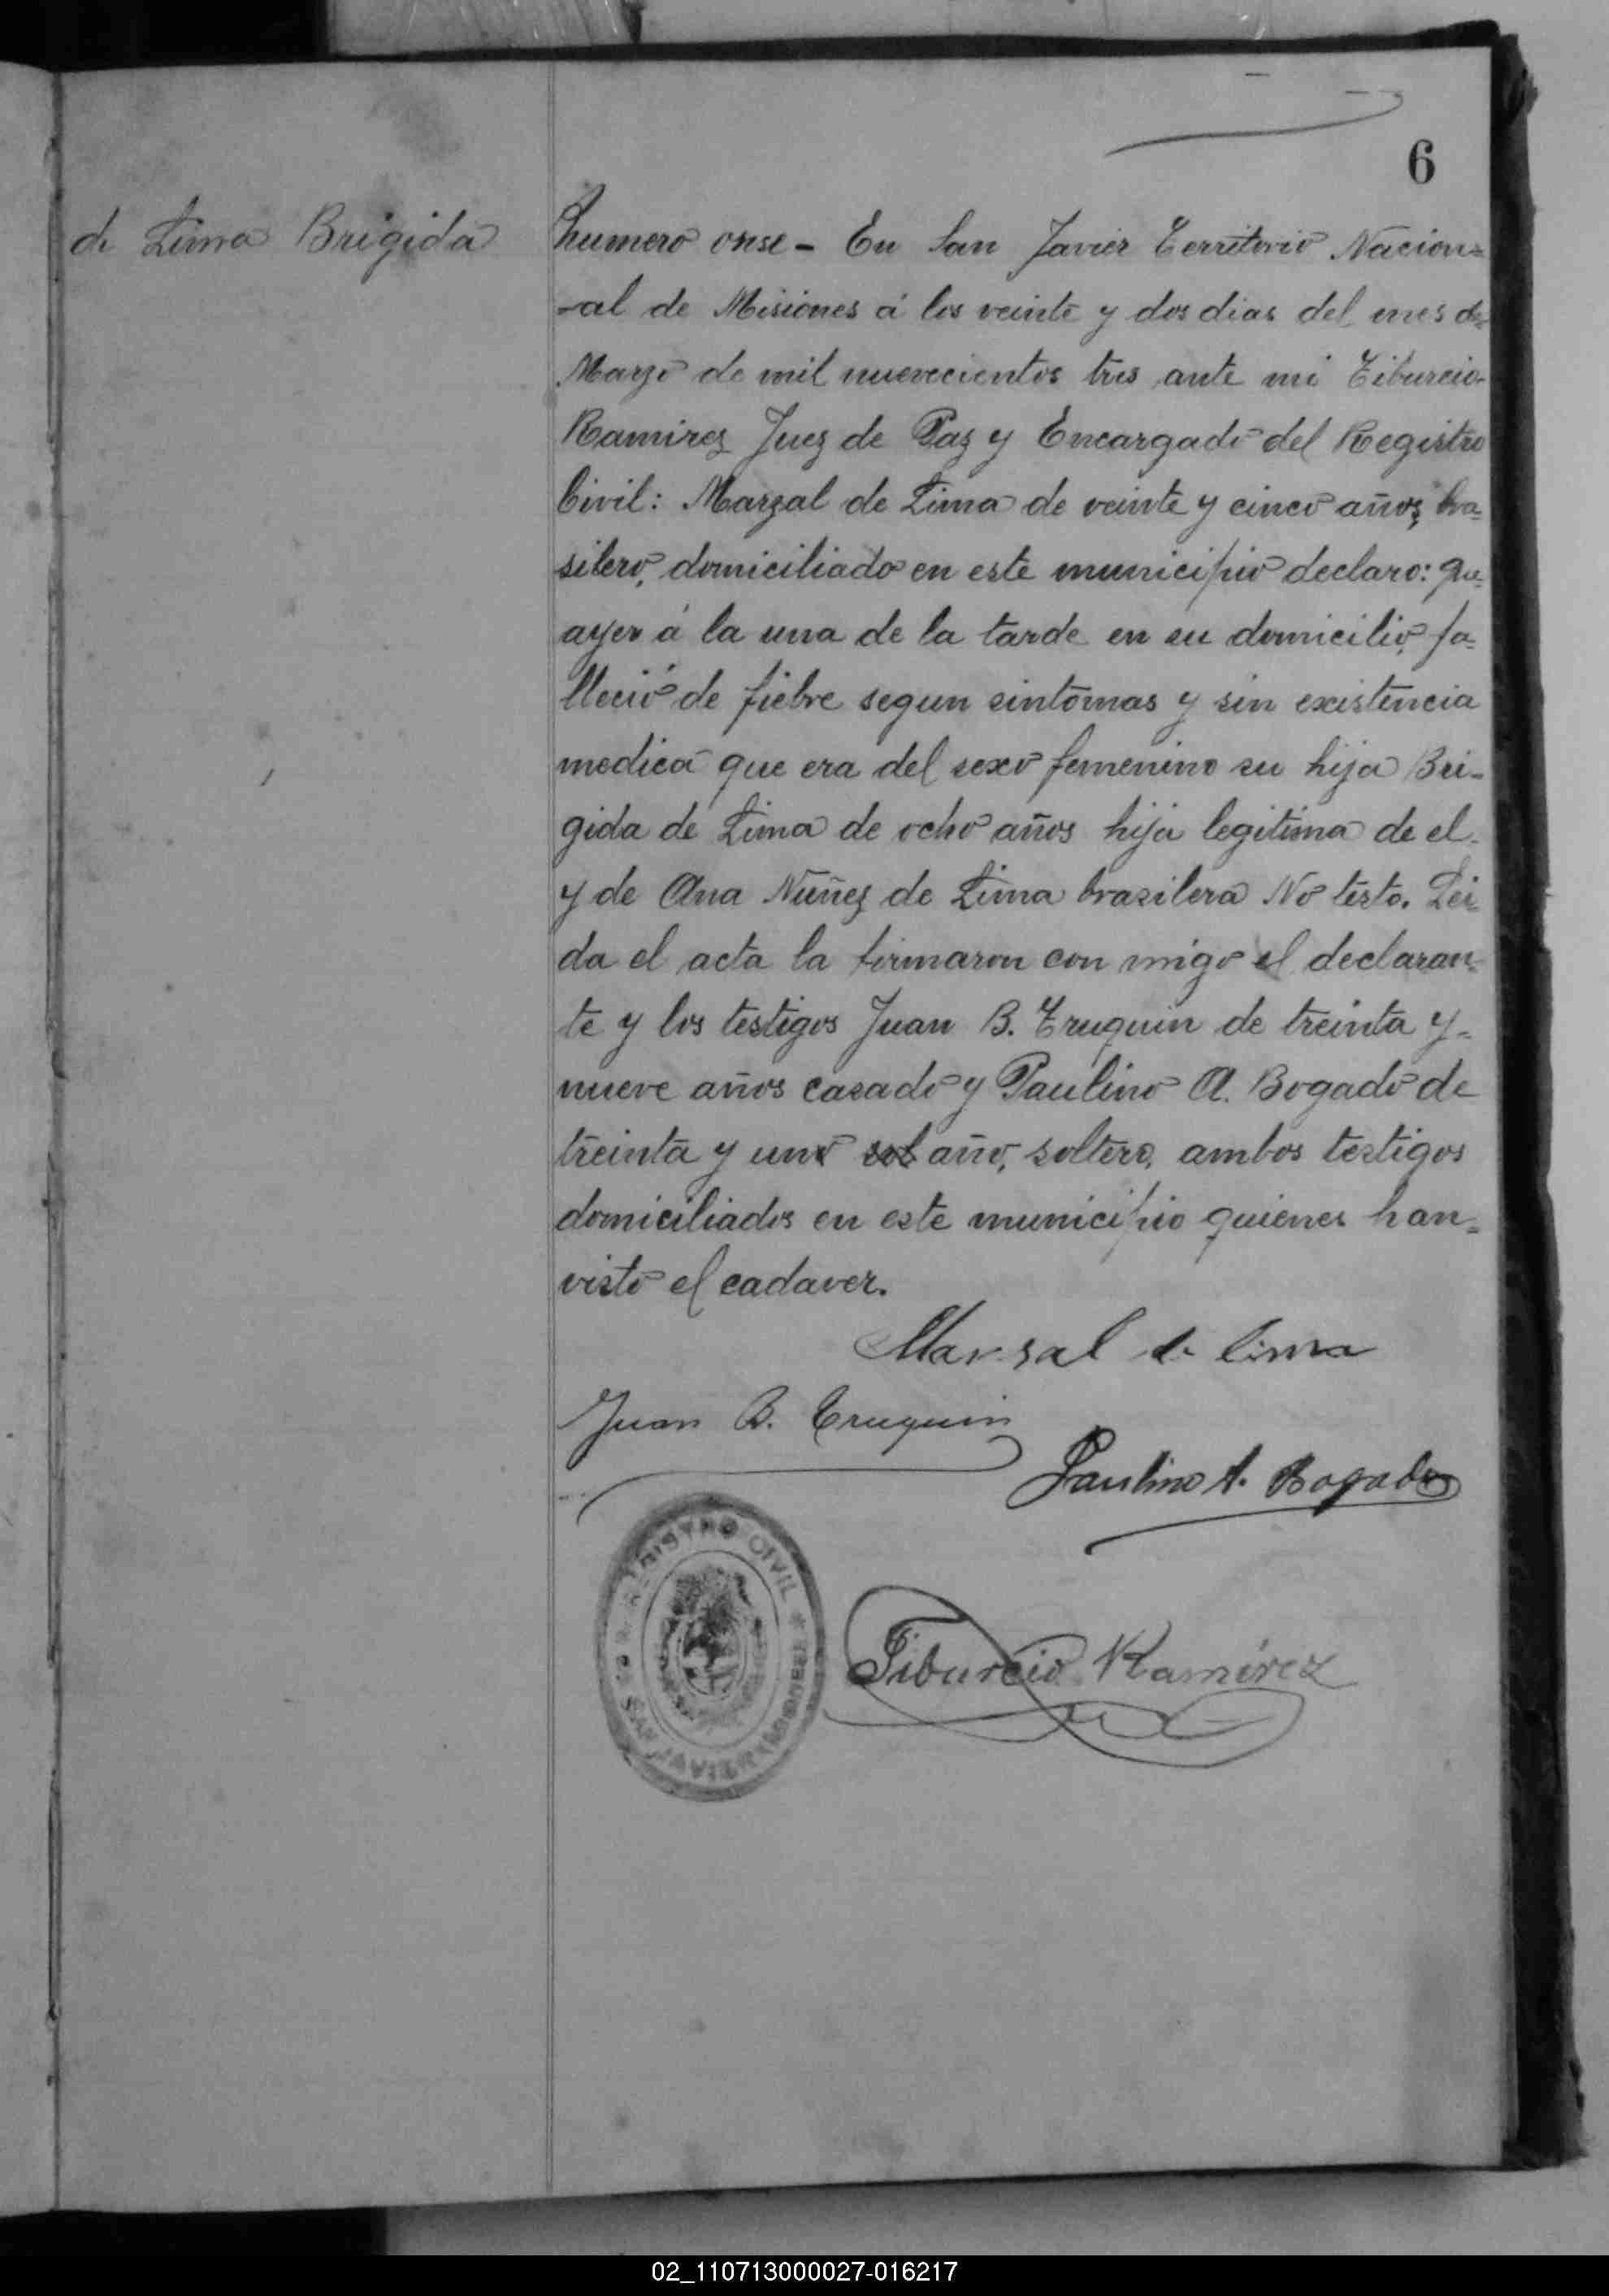 6
de Lima Brigida
Numero onse - En San Javier Territorio Nacion=
-al de Misiones á los veinte y dos dias del mes de
Marzo de mil nuevecientos tres ante mi Tiburcio
Ramirez Juez de Paz y Encargado del Registro
Civil: Marzal de Lima de veinte y cinco años, bra=
silero, domiciliado en este municipio declaro: que
ayer á la una de la tarde en su domicilio, fa=
lleció de fiebre segun sintomas y sin existencia
medica que era del sexo femenino su hija Bri-
gida de Lima de ocho años hija legitima de el
y de Ana Nuñez de Lima brasilera No testo. Lei=
da el acta la firmaron con migo el declaran=
te y los testigos Juan B. Truquin de treinta y-
nueve años casado y Paulino A. Bogado de
treinta y uno sol año, soltero, ambos testigos
domiciliados en este municipio quienes han=
visto el cadaver.
Marsal de lima
Juan B. Truquin
Paulino A. Bogado
REGISTRO CIVIL
SAN JAVIER (MISIONES)
Tiburcio Ramírez
02_110713000027-016217